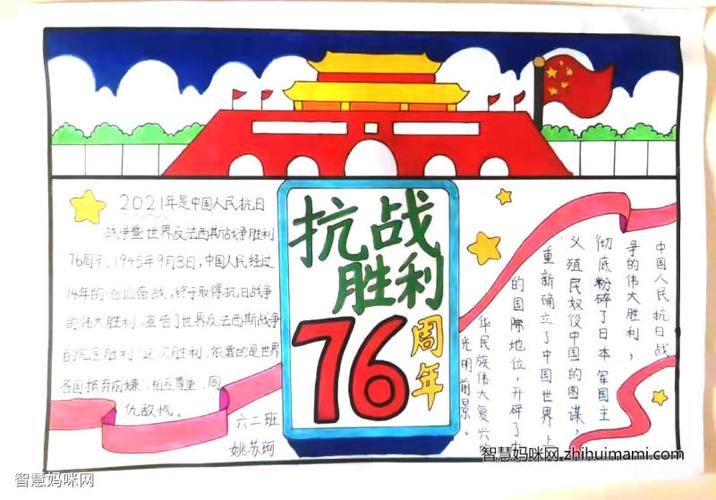 2021年是中国人民抗日
战争暨世界反法西斯战争胜利
76周年。1945年9月3日,中国人民经过
14年的浴血奋战,终于取得抗日战争
的伟大胜利,宣告了世界反法西斯战争
的完全胜利!这次胜利,依靠的是世界
各国摒弃前嫌,相互尊重,同
仇敌忾。
六二班
姚苏珂
抗战
胜利
76
周年
中国人民抗日战
争的伟大胜利,
彻底粉碎了日本军国主
义殖民奴役中国的图谋,
重新确立了中国世界上
的国际地位,开辟了中
华民族伟大复兴的
光明前景。
智慧妈咪网.zhihuimami.com
智慧妈咪网